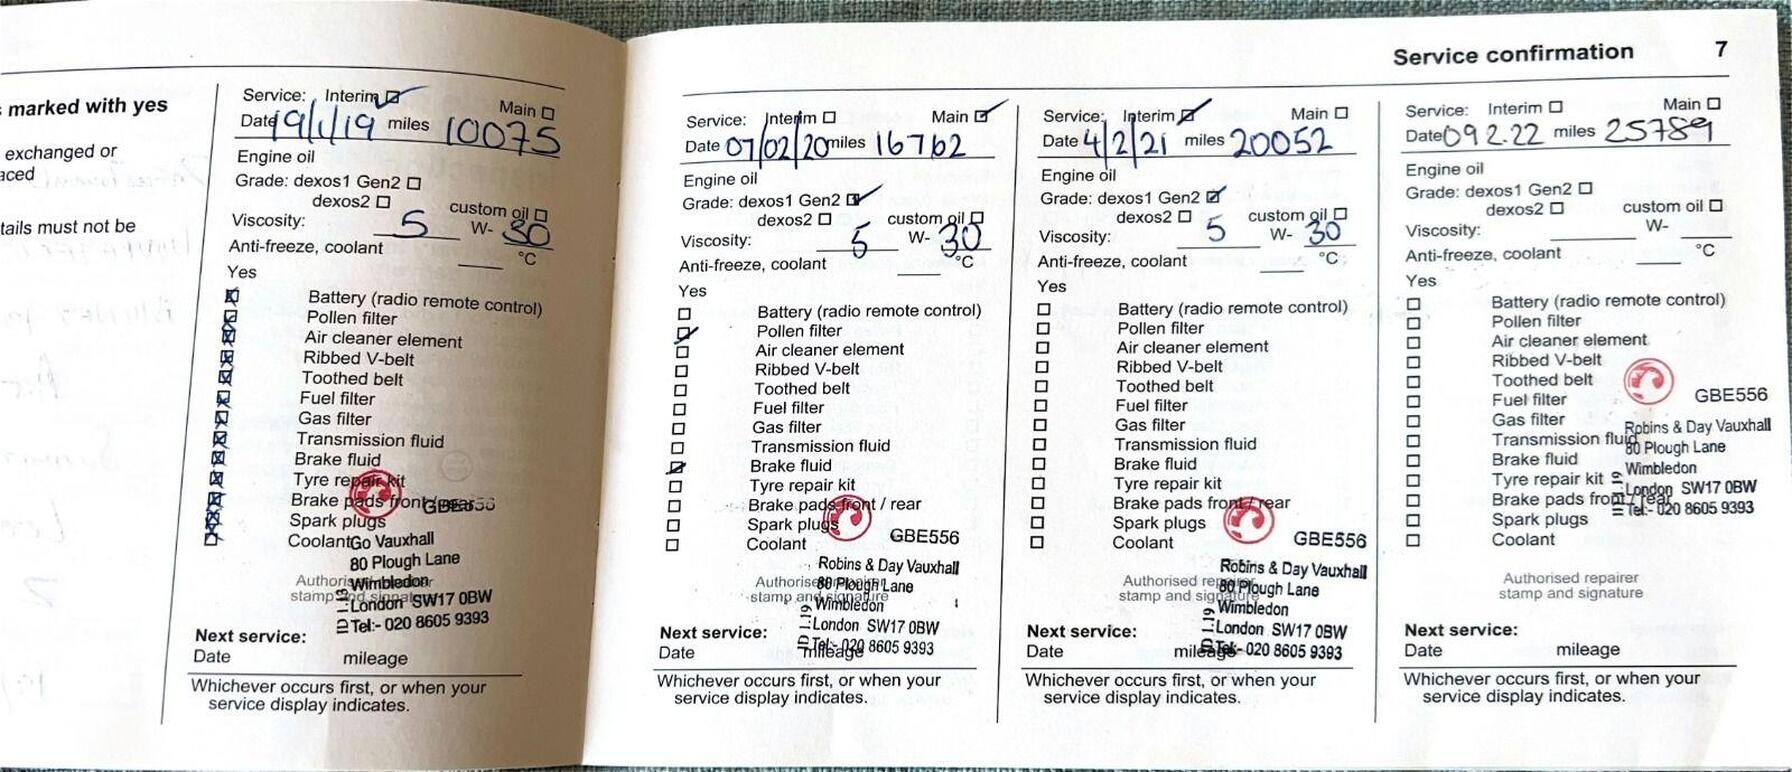 marked with yes
exchanged or
aced
tails must not be
Service: Interim Main
Date 19/1/19 miles 10075
Engine oil
Grade: dexos1 Gen2
dexos2 custom oil
Viscosity: 5 W- 30
Anti-freeze, coolant °C
Yes
Battery (radio remote control)
Pollen filter
Air cleaner element
Ribbed V-belt
Toothed belt
Fuel filter
Gas filter
Transmission fluid
Brake fluid
Tyre repair kit
Brake pads front / rear
GBE556
Spark plugs
Coolant
Go Vauxhall
80 Plough Lane
Wimbledon
London SW17 0BW
Tel:- 020 8605 9393
Authorised repairer
stamp and signature
Next service:
Date mileage
Whichever occurs first, or when your
service display indicates.
Service confirmation 7
Service: Interim Main
Date 07/02/20 miles 16762
Engine oil
Grade: dexos1 Gen2
dexos2 custom oil
Viscosity: 5 W- 30
Anti-freeze, coolant °C
Yes
Battery (radio remote control)
Pollen filter
Air cleaner element
Ribbed V-belt
Toothed belt
Fuel filter
Gas filter
Transmission fluid
Brake fluid
Tyre repair kit
Brake pads front / rear
Spark plugs
Coolant
GBE556
Robins & Day Vauxhall
80 Plough Lane
Wimbledon
London SW17 0BW
Tel:- 020 8605 9393
Authorised repairer
stamp and signature
Next service:
Date mileage
Whichever occurs first, or when your
service display indicates.
Service: Interim Main
Date 4/2/21 miles 20052
Engine oil
Grade: dexos1 Gen2
dexos2 custom oil
Viscosity: 5 W- 30
Anti-freeze, coolant °C
Yes
Battery (radio remote control)
Pollen filter
Air cleaner element
Ribbed V-belt
Toothed belt
Fuel filter
Gas filter
Transmission fluid
Brake fluid
Tyre repair kit
Brake pads front / rear
Spark plugs
Coolant
GBE556
Robins & Day Vauxhall
80 Plough Lane
Wimbledon
London SW17 0BW
Tel:- 020 8605 9393
Authorised repairer
stamp and signature
Next service:
Date mileage
Whichever occurs first, or when your
service display indicates.
Service: Interim Main
Date 09 2.22 miles 25789
Engine oil
Grade: dexos1 Gen2
dexos2 custom oil
Viscosity: W-
Anti-freeze, coolant °C
Yes
Battery (radio remote control)
Pollen filter
Air cleaner element
Ribbed V-belt
Toothed belt
Fuel filter
Gas filter
Transmission fluid
Brake fluid
Tyre repair kit
Brake pads front / rear
Spark plugs
Coolant
GBE556
Robins & Day Vauxhall
80 Plough Lane
Wimbledon
London SW17 0BW
Tel:- 020 8605 9393
Authorised repairer
stamp and signature
Next service:
Date mileage
Whichever occurs first, or when your
service display indicates.